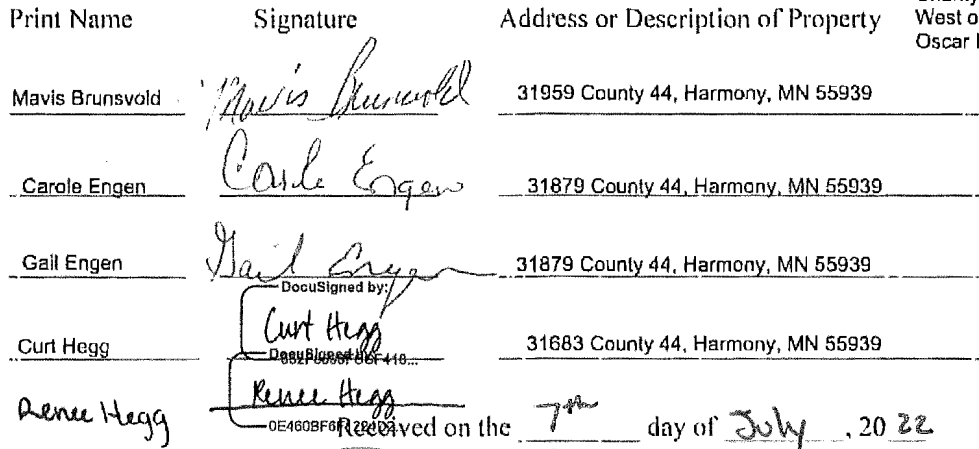 Print Name Signature Address or Description of Property
West o
Oscar
Mavis Brunsvold Mavis Brunsvold 31959 County 44, Harmony, MN 55939
Carole Engen Carole Engen 31879 County 44, Harmony, MN 55939
Gail Engen Gail Engen 31879 County 44, Harmony, MN 55939
DocuSigned by:
Curt Hegg Curt Hegg 31683 County 44, Harmony, MN 55939
DocuSigned by:
Renee Hegg Renee Hegg
Received on the 7th day of July, 2022